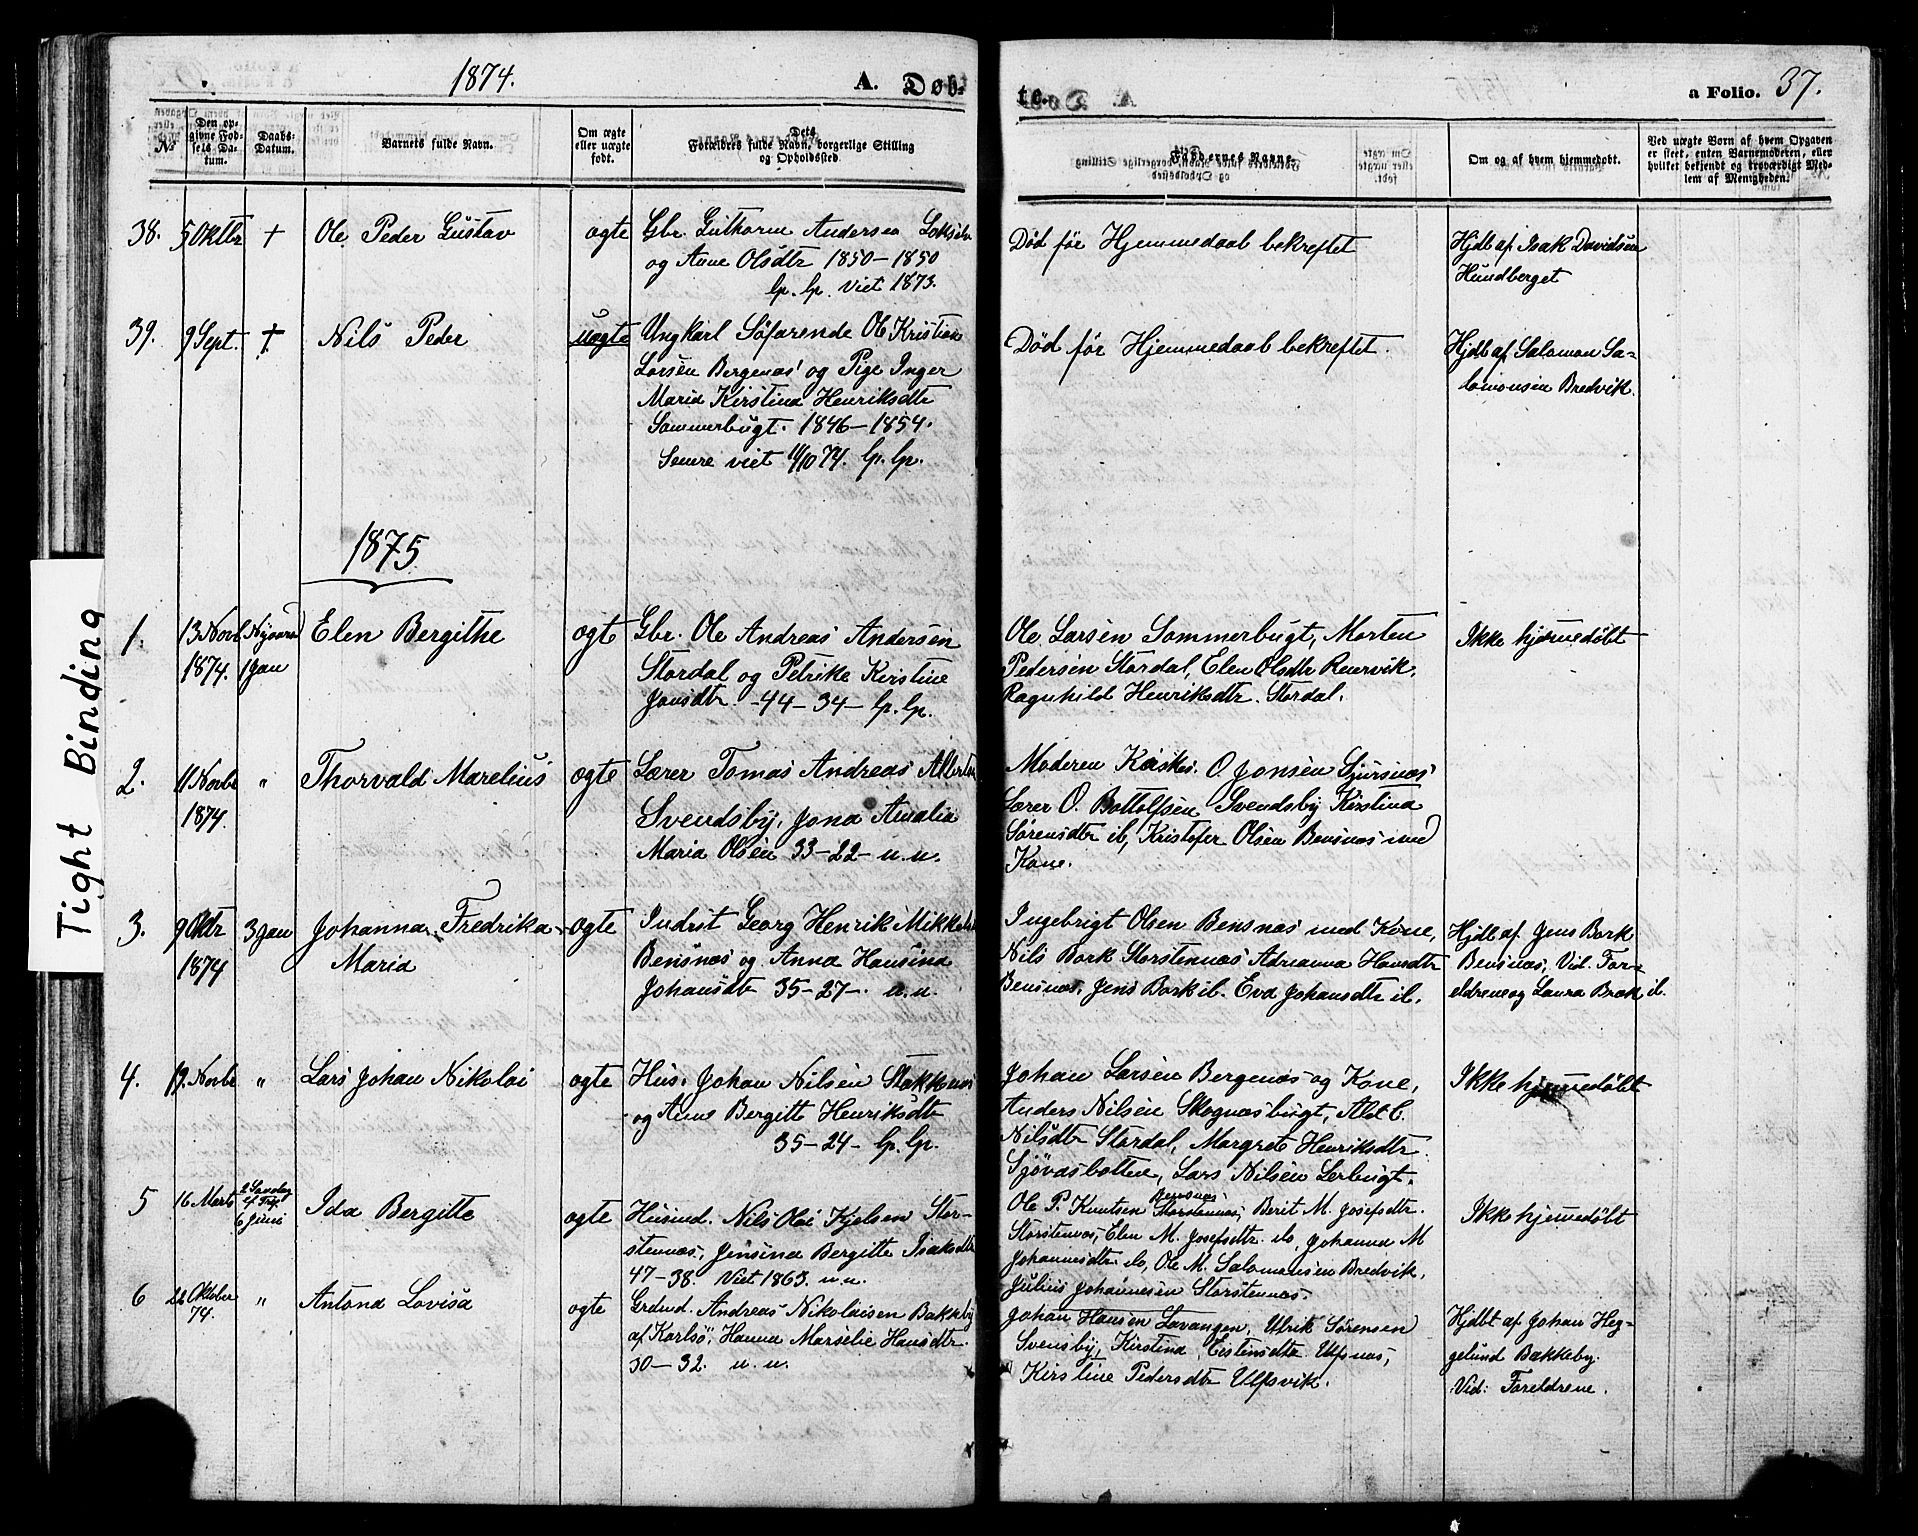 1874.
A. Døb-
te.
a Folio. 37.
№
Den op-
givne Fød-
sels Da-
tum.
Daabs-
Datum.
Barnets fulde Navn.
Om ægte
eller uægte
født.
Dets
Forældres fulde Navn, borgerlige Stilling
og Opholdssted.
Faddernes Navne.
Om og af hvem hjemmedøbt.
Ved uægte Børn af hvem Opgaven
er skeet, enten Barnemoderen, eller
hvilket bekjendt og troværdigt Med-
lem af Menigheden.
38.
5 Oktbr
+
Ole Peder Gustav
ægte
Gbr. Guthorm Andersen
og Anne Olsdtr 1850–1850
lp. lp. Viet 1873.
Død før Hjemmedaab bekreftet
Hjdb af Isak Davidsen
Hundberget
39.
9 Sept.
+
Nils Peder
uægte
Ungkarl Søfarende Ole Kristian
Larsen Bergenæs og Pige Inger
Maria Kirstina Henriksdtr
Sommerbugt. 1846–1854.
Senere viet 11/10 74. lp. lp.
Død før Hjemmedaab bekreftet.
Hjdb af Salomon Sa-
lomonsen Bredvik.
1875
1
13 Novb
1874.
Nyaars
1 Jan
Elen Bergithe
ægte
Gbr. Ole Andreas Andersen
Stordal og Petrike Kirstine
Jonsdtr -44-34- lp. lp.
Ole Larsen Sommerbugt, Morten
Pedersen Stordal, Elen Olsdtr Renrvik,
Ragnhild Henriksdtr. Stordal.
Ikke hjemmedøbt
2.
11 Novbr
1874.
"
Thorvald Marelius
ægte
Lærer Tomas Andreas
Svendsby, Jona Amalia
Maria Olsen 33–22– u. u.
Moderen O. Jonsen Sjursnæs
Lærer O. Bottolfsen Svendsby Kirstina
Sørensdtr ib, Kristofer Olsen Bensnæs med
Kone.
3.
9 Oktr
1874
3 Jan
Johanna Fredrika
Maria
ægte
Indrst Georg Henrik
Bensnæs og Anna Hansina
Johansdtr 35–27–. u. u.
Ingebrigt Olsen Bensnæs med Kone,
Nils Bork Storstennæs Adrianna Hansdtr
Bensnæs, Jens Bork ib. Eva Johansdtr ib.
Hjdb af Jens Bork
Bensnæs, Vid. For-
eldrene og Laura Bræk ib.
4.
19. Novbr
"
Lars Johan Nikolai
ægte
Hus. Johan Nilsen Stakkenæs
og Anne Bergitte Henriksdtr
35–24– lp. lp.
Johan Larsen Bergenæs og Kone,
Anders Nilsen Skognæsbugt,
Nilsdtr Stordal, Margrete Henriksdtr
Sjøvasbotten, Lars Nilsen Lerbugt.
Ikke hjemmedøbt
5
16 Marts
2 Søndag
ef Tref
6 Juni
Ida Bergitte
ægte
Husmd. Nils Olai Kjelsen Stor-
stennæs, Jensina Bergitte Isaksdtr
47–38. Viet 1863. u. u.
Bensnæs
Ole P. Knutsen Storstennæs, Berit M. Josefsdtr.
Storstennæs, Elen M. Josefsdtr. do, Johanna M
Johannesdtr do, Ole M. Salomonsen Bredvik,
Julius Johannesen Storstennæs.
Ikke hjemmedøbt
6
22 Oktober
74.
"
Antona Lovisa
ægte
Grdmd. Andreas Nikolaisen Bakkeby
af Karlsø, Hanna Marselie Hansdtr.
30–32. u. u.
Johan Hansen Lavangen, Ulrik Sørensen
Svensby, Kirstina Eistensdtr. Ulfsnæs,
Kirstine Pedersdtr Ulfsvik.
Hjdbt af Johan Heg-
gelund Bakkeby.
Vid: Foreldrene.
Tight Binding